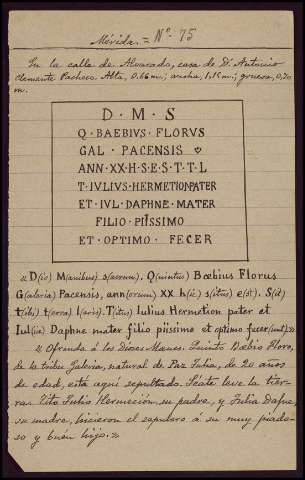 Mérida.= Nº. 75
En la calle de Alvarado, casa de Dⁿ Antonio
Clemente Pacheco. Alta, 0,66 m.; ancha, 1,15 m.; gruesa, 0,70
m.
D · M · S
Q · BAEBIVS · FLORVS
GAL · PACENSIS
ANN · XX · H · S · E · S · T · T · L
T · IVLIVS · HERMETION PATER
ET · IVL · DAPHNE · MATER
FILIO · PIISSIMO
ET · OPTIMO · FECER
« D(is) M(anibus) s(acrum). Q(uintus) Bæbius Florus
G(aleria) Pacensis, ann(orum) XX h(ic) s(itus) e(st). S(it)
t(ibi) t(erra) l(evis). T(itus) Iulius Hermetion pater et
Iul(ia) Daphne mater filio piissimo et optimo fecer(unt).»
« Ofrenda á los Dioses Manes. Quinto Bæbio Floro,
de la tribu Galeria, natural de Pax Julia, de 20 años
de edad, está aquí sepultado. Séate leve la tier-
ra. Tito Julio Hermeción, su padre, y Julia Dafne,
su madre, hicieron el sepulcro á su muy piado-
so y buen hijo.»